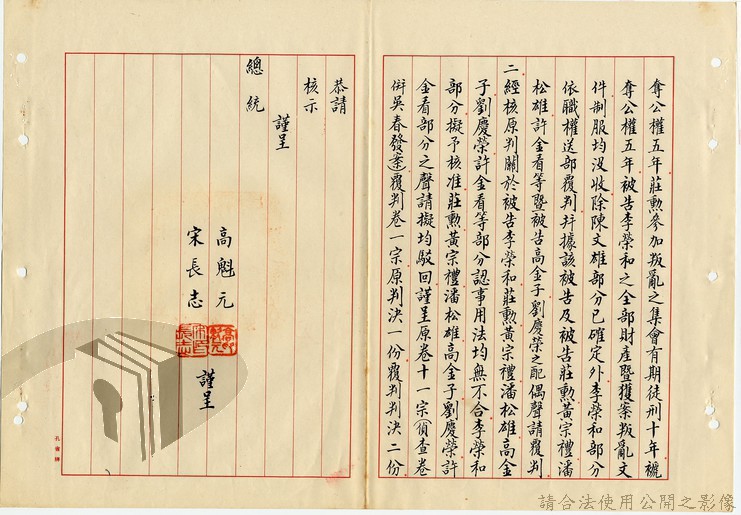 奪公權五年莊勳參加叛亂之集會有期徒刑十年褫
奪公權五年被告李榮和之全部財產暨獲案叛亂文
件制服均沒收除陳文雄部分已確定外李榮和部分
依職權送部覆判并據該被告及被告莊勳黃宗禮潘
松雄許金看等暨被告高金子劉慶榮之配偶聲請覆判
二經核原判關於被告李榮和莊勳黃宗禮潘松雄高金
子劉慶榮許金看等部分認事用法均無不合李榮和
部分擬予核准莊勳黃宗禮潘松雄高金子劉慶榮許
金看部分之聲請擬均駁回謹呈原卷十一宗偵查卷
併吳春發案覆判卷一宗原判決一份覆判判決二份
恭請
核示
謹呈
總統
高魁元
宋長志
謹呈
請合法使用公開之影像